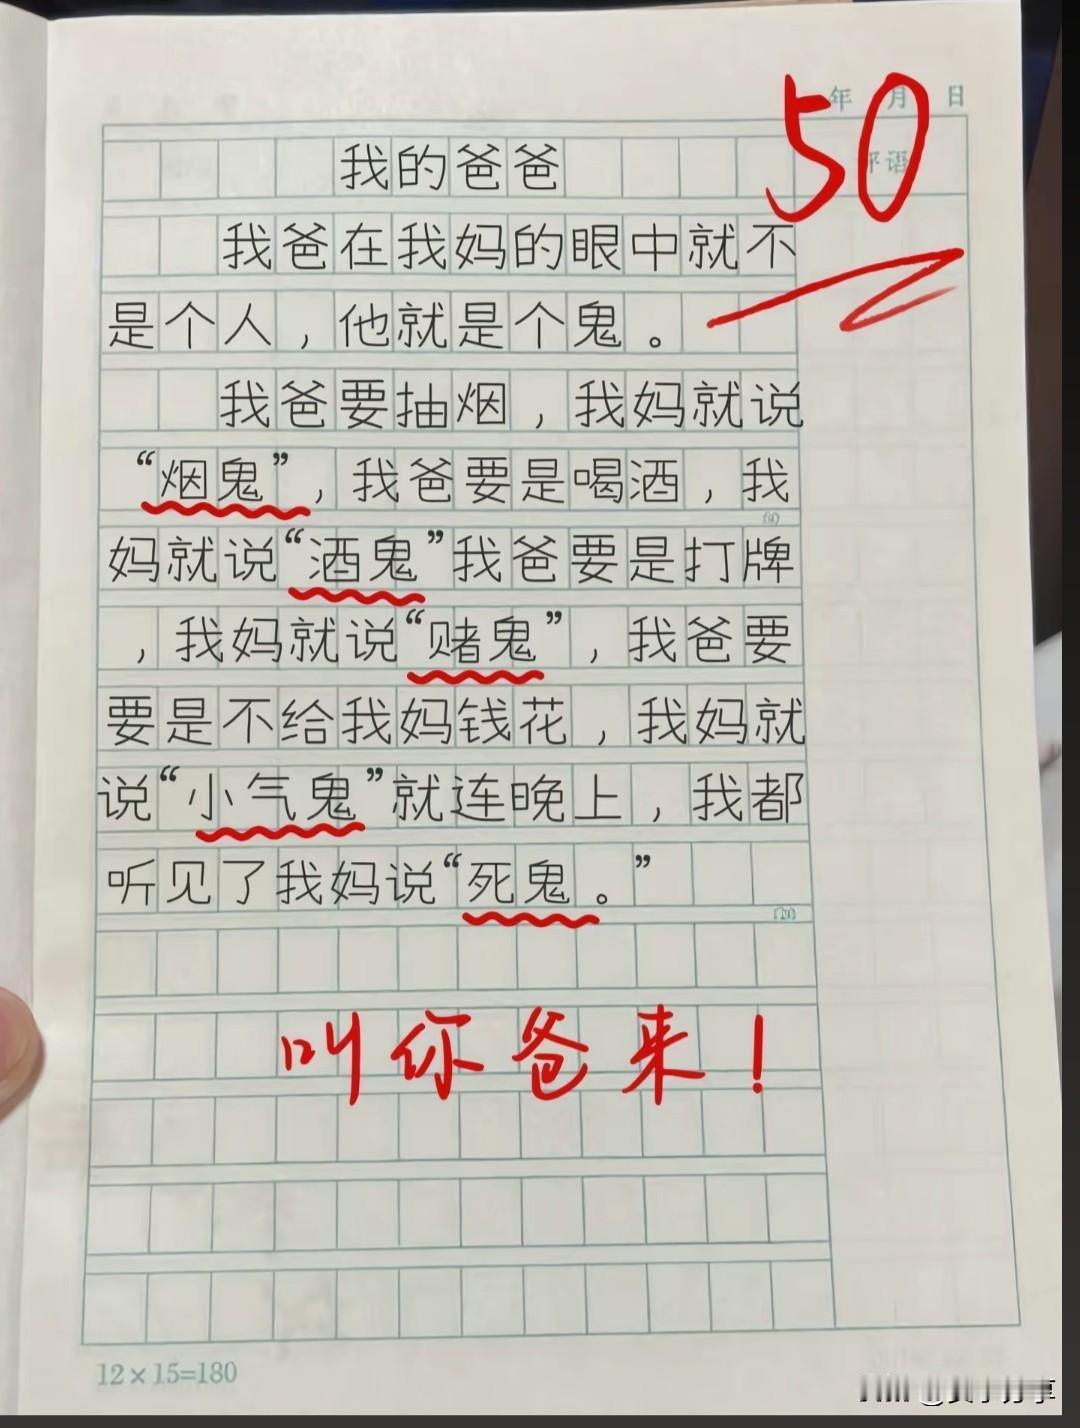 年 月 日
50
评语
我的爸爸
我爸在我妈的眼中就不
是个人，他就是个鬼。
我爸要抽烟，我妈就说
“烟鬼”，我爸要是喝酒，我
妈就说“酒鬼”我爸要是打牌
，我妈就说“赌鬼”，我爸要
要是不给我妈钱花，我妈就
说“小气鬼”就连晚上，我都
听见了我妈说“死鬼。”
叫你爸来！
12×15=180